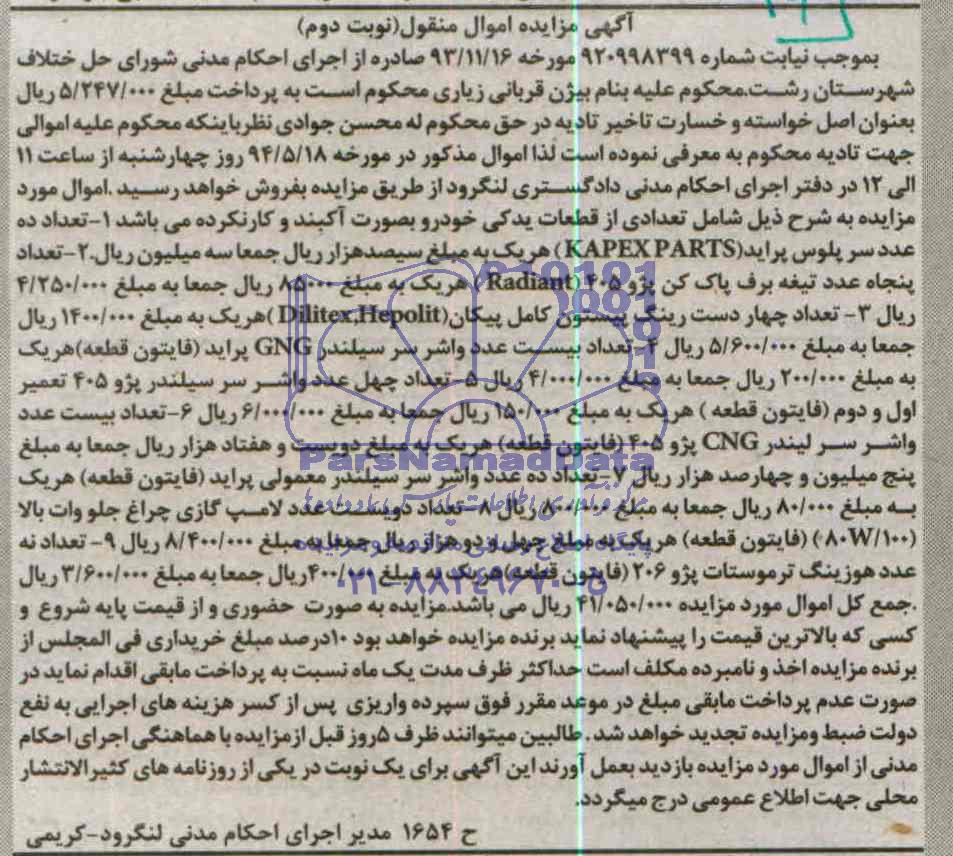 آگهی مزایده اموال منقول(نوبت دوم)
بموجب نیابت شماره ۹۲۰۹۹۸۳۹۹ مورخه ۹۳/۱۱/۱۶ صادره از اجرای احکام مدنی شورای حل ختلاف
شهرستان رشت.محکوم علیه بنام بیژن قربانی زیاری محکوم است به پرداخت مبلغ ۵/۲۴۷/۰۰۰ ریال
بعنوان اصل خواسته و خسارت تاخیر تادیه در حق محکوم له محسن جوادی نظرباینکه محکوم علیه اموالی
جهت تادیه محکوم به معرفی نموده است لذا اموال مذکور در مورخه ۹۴/۵/۱۸ روز چهارشنبه از ساعت ۱۱
الی ۱۲ در دفتر اجرای احکام مدنی دادگستری لنگرود از طریق مزایده بفروش خواهد رسید .اموال مورد
مزایده به شرح ذیل شامل تعدادی از قطعات یدکی خودرو بصورت آکبند و کارنکرده می باشد ۱-تعداد ده
عدد سر پلوس پراید(KAPEX PARTS) هریک به مبلغ سیصدهزار ریال جمعا سه میلیون ریال.۲-تعداد
پنجاه عدد تیغه برف پاک کن پژو ۴۰۵ (Radiant) هریک به مبلغ ۸۵۰۰۰ ریال جمعا به مبلغ ۴/۲۵۰/۰۰۰
ریال ۳- تعداد چهار دست رینگ پیستون کامل پیکان(Dilitex,Hepolit) هریک به مبلغ ۱۴۰۰/۰۰۰ ریال
جمعا به مبلغ ۵/۶۰۰/۰۰۰ ریال ۴-تعداد بیست عدد واشر سر سیلندر GNG پراید (فایتون قطعه)هریک
به مبلغ ۲۰۰/۰۰۰ ریال جمعا به مبلغ ۴/۰۰۰/۰۰۰ ریال ۵-تعداد چهل عدد واشر سر سیلندر پژو ۴۰۵ تعمیر
اول و دوم (فایتون قطعه ) هریک به مبلغ ۱۵۰/۰۰۰ ریال جمعا به مبلغ ۶/۰۰۰/۰۰۰ ریال ۶-تعداد بیست عدد
واشر سر لیندر CNG پژو ۴۰۵ (فایتون قطعه) هریک به مبلغ دویست و هفتاد هزار ریال جمعا به مبلغ
پنج میلیون و چهارصد هزار ریال ۷-تعداد ده عدد واشر سر سیلندر معمولی پراید (فایتون قطعه) هریک
به مبلغ ۸۰/۰۰۰ ریال جمعا به مبلغ ۸۰۰/۰۰۰ ریال ۸-تعداد دویست عدد لامپ گازی چراغ جلو وات بالا
(۸۰W/۱۰۰) (فایتون قطعه) هریک به مبلغ چهل و دو هزار ریال جمعا به مبلغ ۸/۴۰۰/۰۰۰ ریال ۹- تعداد نه
عدد هوزینگ ترموستات پژو ۲۰۶ (فایتون قطعه)هریک به مبلغ ۴۰۰/۰۰۰ریال جمعا به مبلغ ۳/۶۰۰/۰۰۰ ریال
.جمع کل اموال مورد مزایده ۴۱/۰۵۰/۰۰۰ ریال می باشد.مزایده به صورت حضوری و از قیمت پایه شروع و
کسی که بالاترین قیمت را پیشنهاد نماید برنده مزایده خواهد بود ۱۰درصد مبلغ خریداری فی المجلس از
برنده مزایده اخذ و نامبرده مکلف است حداکثر ظرف مدت یک ماه نسبت به پرداخت مابقی اقدام نماید در
صورت عدم پرداخت مابقی مبلغ در موعد مقرر فوق سپرده واریزی پس از کسر هزینه های اجرایی به نفع
دولت ضبط ومزایده تجدید خواهد شد . طالبین میتوانند ظرف ۵روز قبل ازمزایده با هماهنگی اجرای احکام
مدنی از اموال مورد مزایده بازدید بعمل آورند این آگهی برای یک نوبت در یکی از روزنامه های کثیرالانتشار
محلی جهت اطلاع عمومی درج میگردد.
ح ۱۶۵۴ مدیر اجرای احکام مدنی لنگرود-کریمی
ParsNamadData